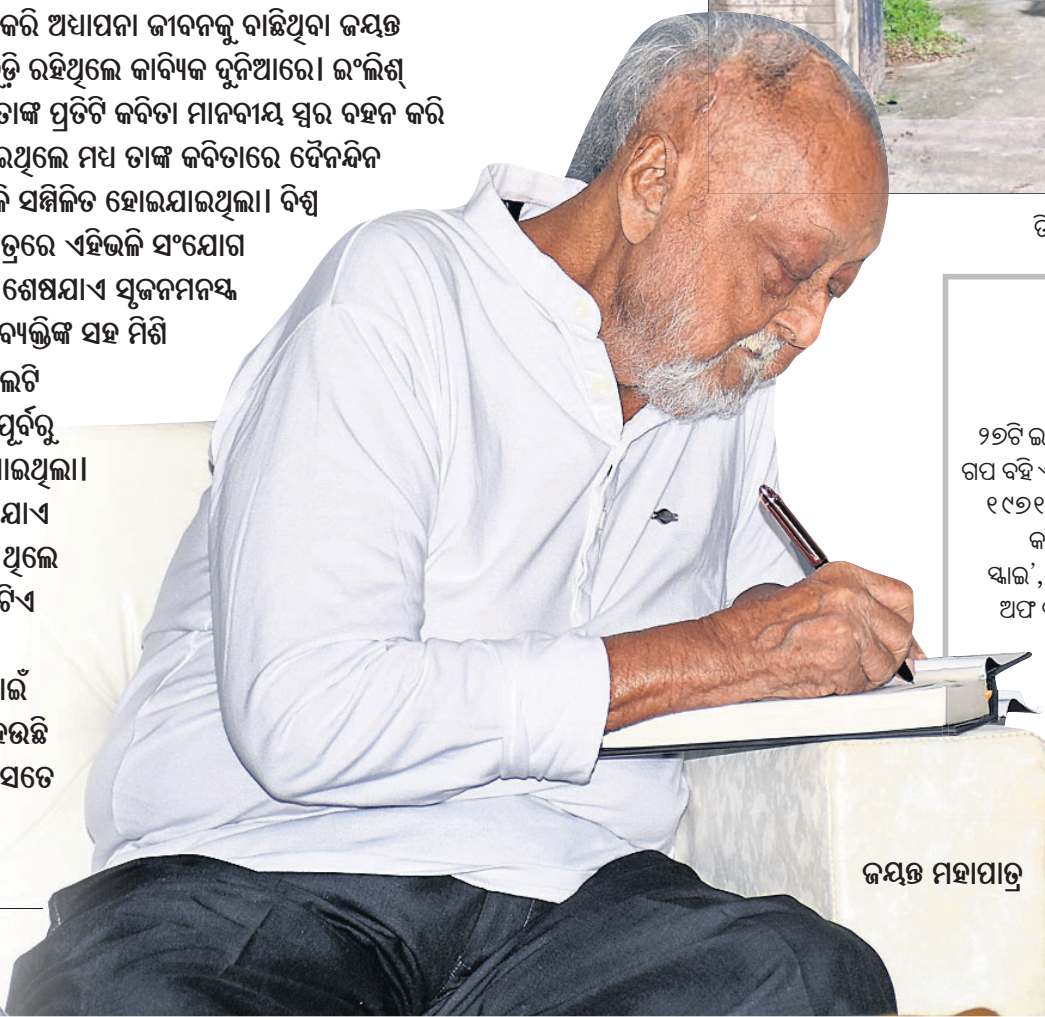 କରି ଅଧ୍ୟାପନା ଜୀବନକୁ ବାଛିଥିବା ଜୟନ୍ତ
ରହିଥିଲେ କାବ୍ୟିକ ଦୁନିଆରେ। ଇଂଲିଶ୍
ତାଙ୍କ ପ୍ରତିଟି କବିତା ମାନବୀୟ ସ୍ୱର ବହନ କରି
ଇଥିଲେ ମଧ୍ୟ ତାଙ୍କ କବିତାରେ ଦୈନନ୍ଦିନ
ସମ୍ମିଳିତ ହୋଇଯାଇଥିଲା। ବିଶ୍ୱ
ତ୍ରରେ ଏହିଭଳି ସଂଯୋଗ
ଶେଷଯାଏ ସୃଜନମନସ୍କ
ବ୍ୟକ୍ତିଙ୍କ ସହ ମିଶି
ଲଟି
ପୂର୍ବରୁ
ାଇଥିଲା।
ଯାଏ
ଥିଲେ
ଟିଏ
ାଇଁ
ହେଉଛି
ସତେ
୨୭ଟି ଇ
ଗପ ବହି ଏ
୧୯୭୧
କ
ସ୍କାଇ',
ଅଫ
ଜୟନ୍ତ ମହାପାତ୍ର